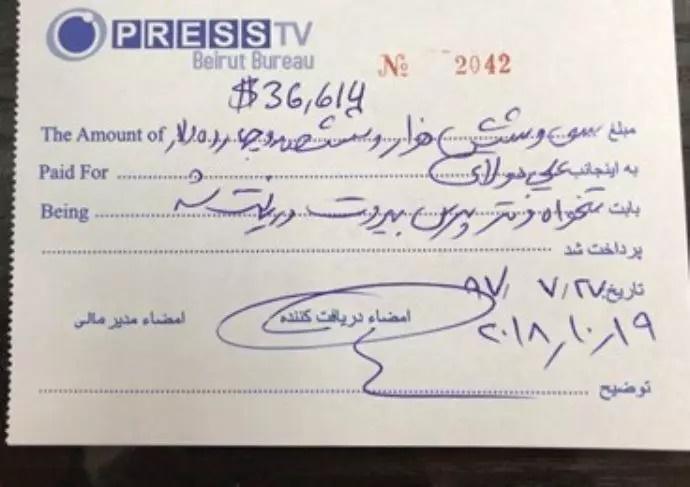 PRESSTV
Beirut Bureau
№ 2042
$36,614
The Amount of سی و شش هزار و ششصد و چهارده دلار مبلغ
Paid For علی مولای به اینجانب
Being تنخواه دفتر پرس بیروت دریافت شد بابت
پرداخت شد
تاریخ: ۹۷/ ۷/۲۷
۲۰۱۸/۱۰/۱۹
امضاء دریافت کننده امضاء مدیر مالی
توضیح